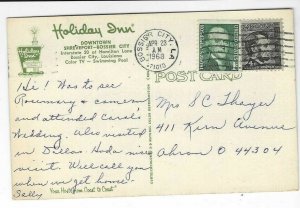 Holiday Inn
DOWNTOWN
SHREVEPORT-BOSSIER CITY
Interstate 20 at Hamilton Lane
Bossier City, Louisiana
Color TV - Swimming Pool
Holiday Inn
BOSSIER CITY, LA
APR 22
AM
1968
POST CARD
Hi! Was to see
Rosemary & Cameron
and attended Carol's
Wedding. Also visited
in Dallas
visit. Will call you
when we get home.
Sally
"Your Host from Coast to Coast"
Mrs S C Thayer
411 Kern Avenue
Akron O 44304